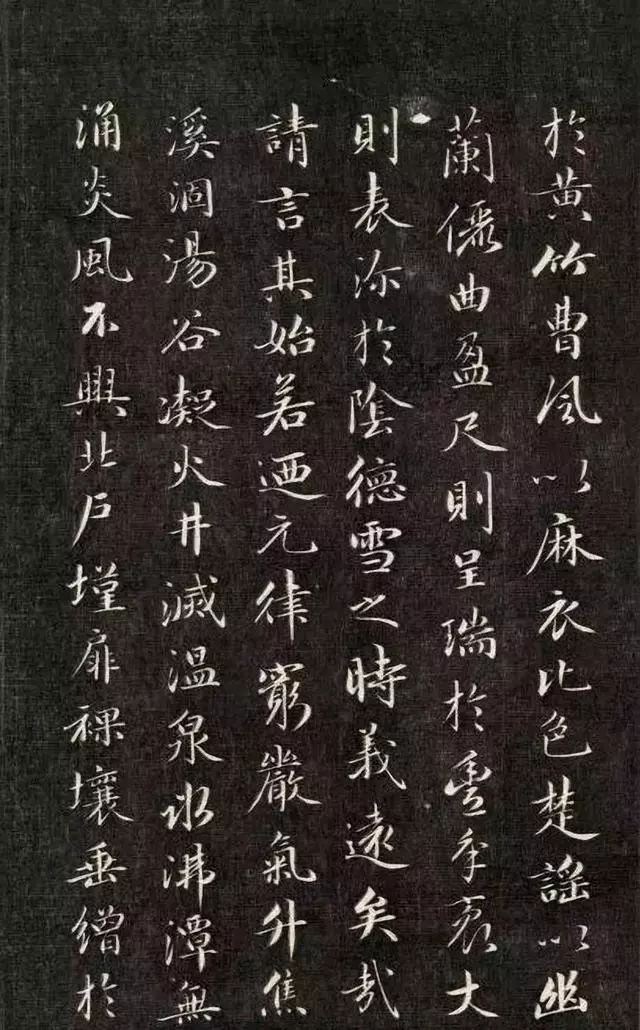 於黃竹曹風以麻衣比色楚謠以幽
蘭儷曲盈尺則呈瑞於豐年袤丈
則表沴於陰德雪之時義遠矣哉
請言其始若迺元律窮嚴氣升焦
溪涸湯谷凝火井滅溫泉冰沸潭無
涌炎風不興北戶墐扉裸壤垂繒於